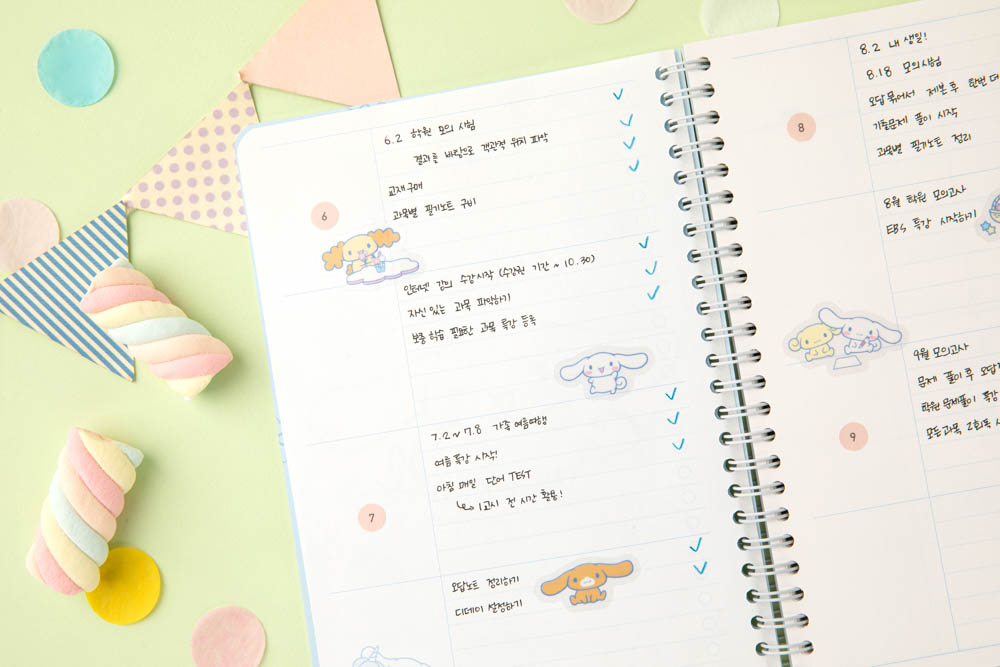 6
6.2 학원 모의 시험
결과를 바탕으로 객관적 위치 파악
교재 구매
과목별 필기노트 구비
인터넷 강의 수강시작 (수강권 기간 ~ 10.30)
자신 있는 과목 파악하기
보충 학습 필요한 과목 특강 등록
7
7.2 ~ 7.8 가족 여름여행
여름 특강 시작!
아침 매일 단어 TEST
↳ 1교시 전 시간 활용!
오답노트 정리하기
디데이 설정하기
8
8.2 내 생일!
8.18 모의시험
오답 묶어서 제본 후 한번 더
기출문제 풀이 시작
과목별 필기노트 정리
8월 학원 모의고사
EBS 특강 시작하기
9
9월 모의고사
문제 풀이 후 오답
학원 문제풀이 특강
모든 과목 2회독